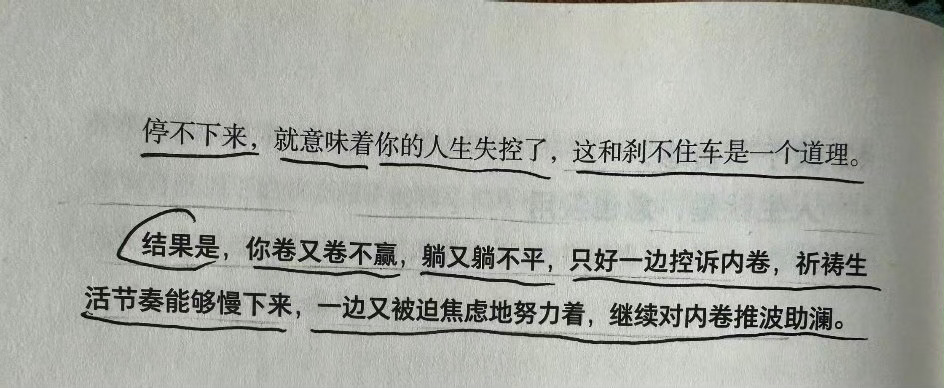 停不下来，就意味着你的人生失控了，这和刹不住车是一个道理。
结果是，你卷又卷不赢，躺又躺不平，只好一边控诉内卷，祈祷生
活节奏能够慢下来，一边又被迫焦虑地努力着，继续对内卷推波助澜。